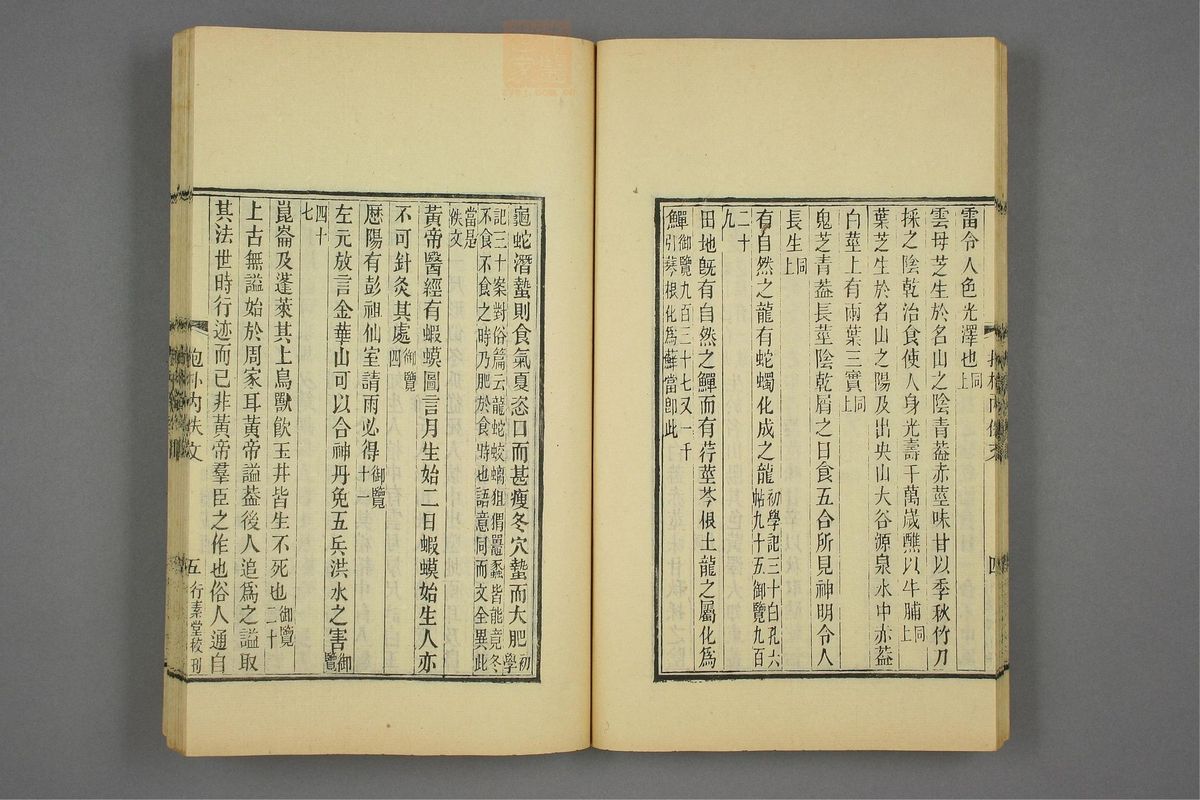 雷令人色光澤也同上
雲母芝生於名山之陰青葢赤莖味甘以季秋竹刀
採之陰乾治食使人身光壽千萬歲醮以牛脯同上
葉芝生於名山之陽及出央山大谷源泉水中赤葢
白莖上有兩葉三實同上
鬼芝青葢長莖陰乾屑之日食五合所見神明令人
長生同上
有自然之龍有蛇蠋化成之龍初學記三十白孔六帖九十五御覽九百
二十九
田地旣有自然之鱓而有荇莖芩根土龍之屬化爲
鱓御覽九百三十七又一千引芩根化爲鱓當卽此
四
龜蛇潛蟄則食氣夏恣口而甚瘦冬穴蟄而大肥初學
記三十案對俗篇云龍蛇蛟螭狙猬鼉蠡皆能竟冬不食不食之時乃肥於食時也語意同而文全異此
當是佚文
黃帝醫經有蝦蟆圖言月生始二日蝦蟆始生人亦
不可針灸其處御覽四
厯陽有彭祖仙室請雨必得御覽十一
左元放言金華山可以合神丹免五兵洪水之害御覽
四十七
崑崙及蓬萊其上鳥獸飮玉井皆生不死也御覽二十
上古無謚始於周家耳黃帝謚葢後人追爲之謚取
其法世時行迹而已非黃帝羣臣之作也俗人通自
抱朴內佚文
五
行素堂校刊